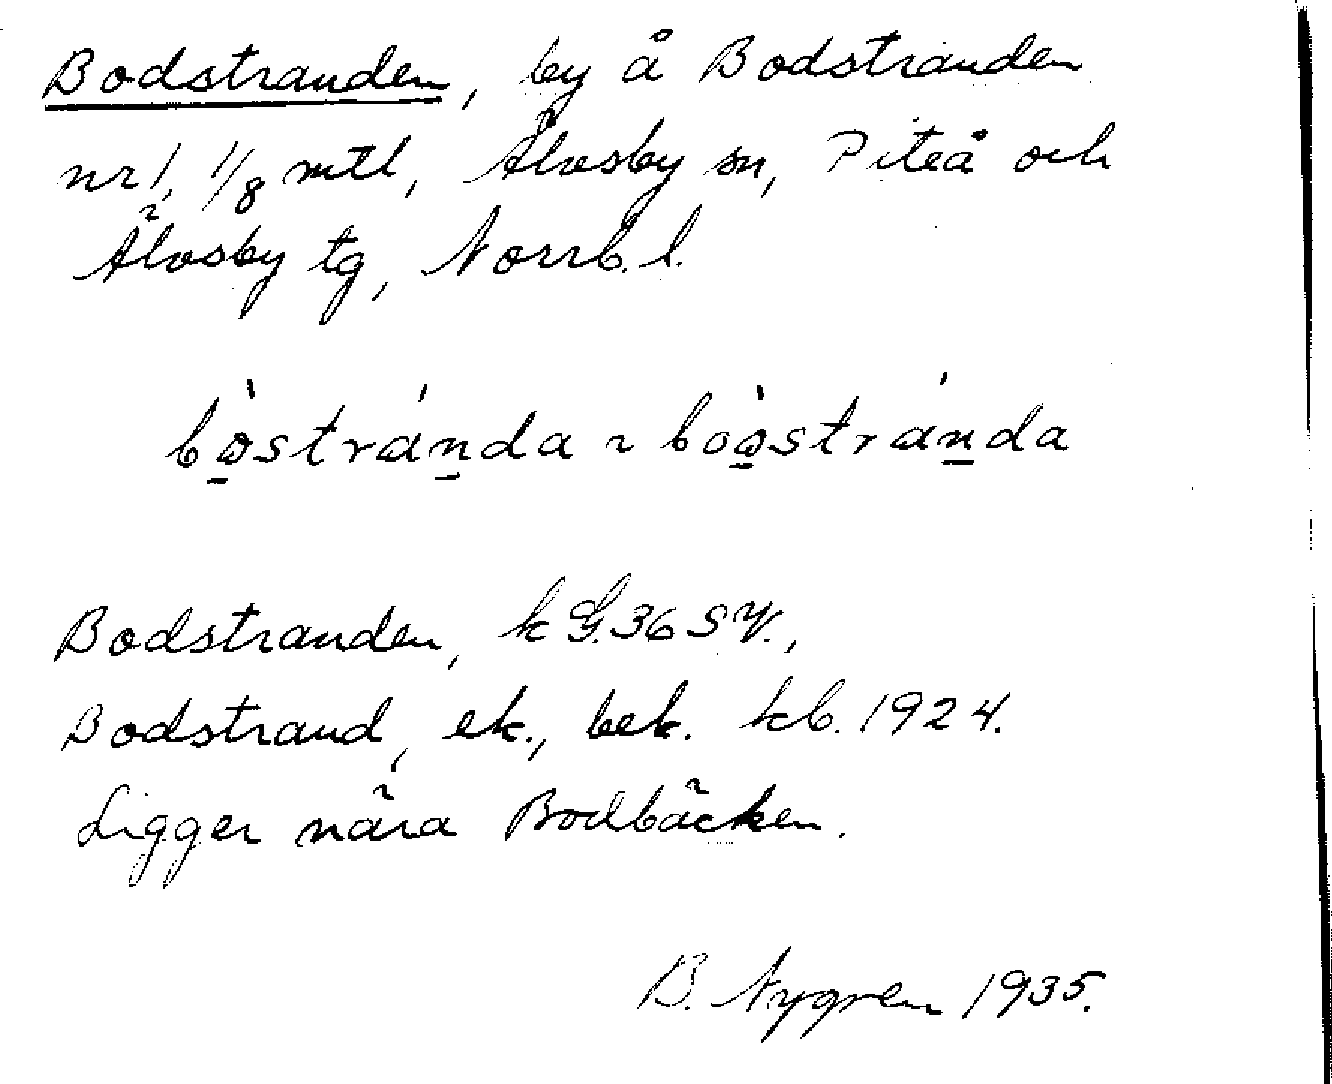 Bodstranden, by å Bodstranden
nr 1, 1/8 mtl, Älvsby sn, Piteå och
Älvsby tg, Norrb. l.
bȯ̱strán̲da ~ boȯ̱strán̲da
Bodstranden, k G. 36 SV.,
Bodstrand, ek., bek. kb. 1924.
Ligger nära Bodbäcken.
B. Nygren 1935.